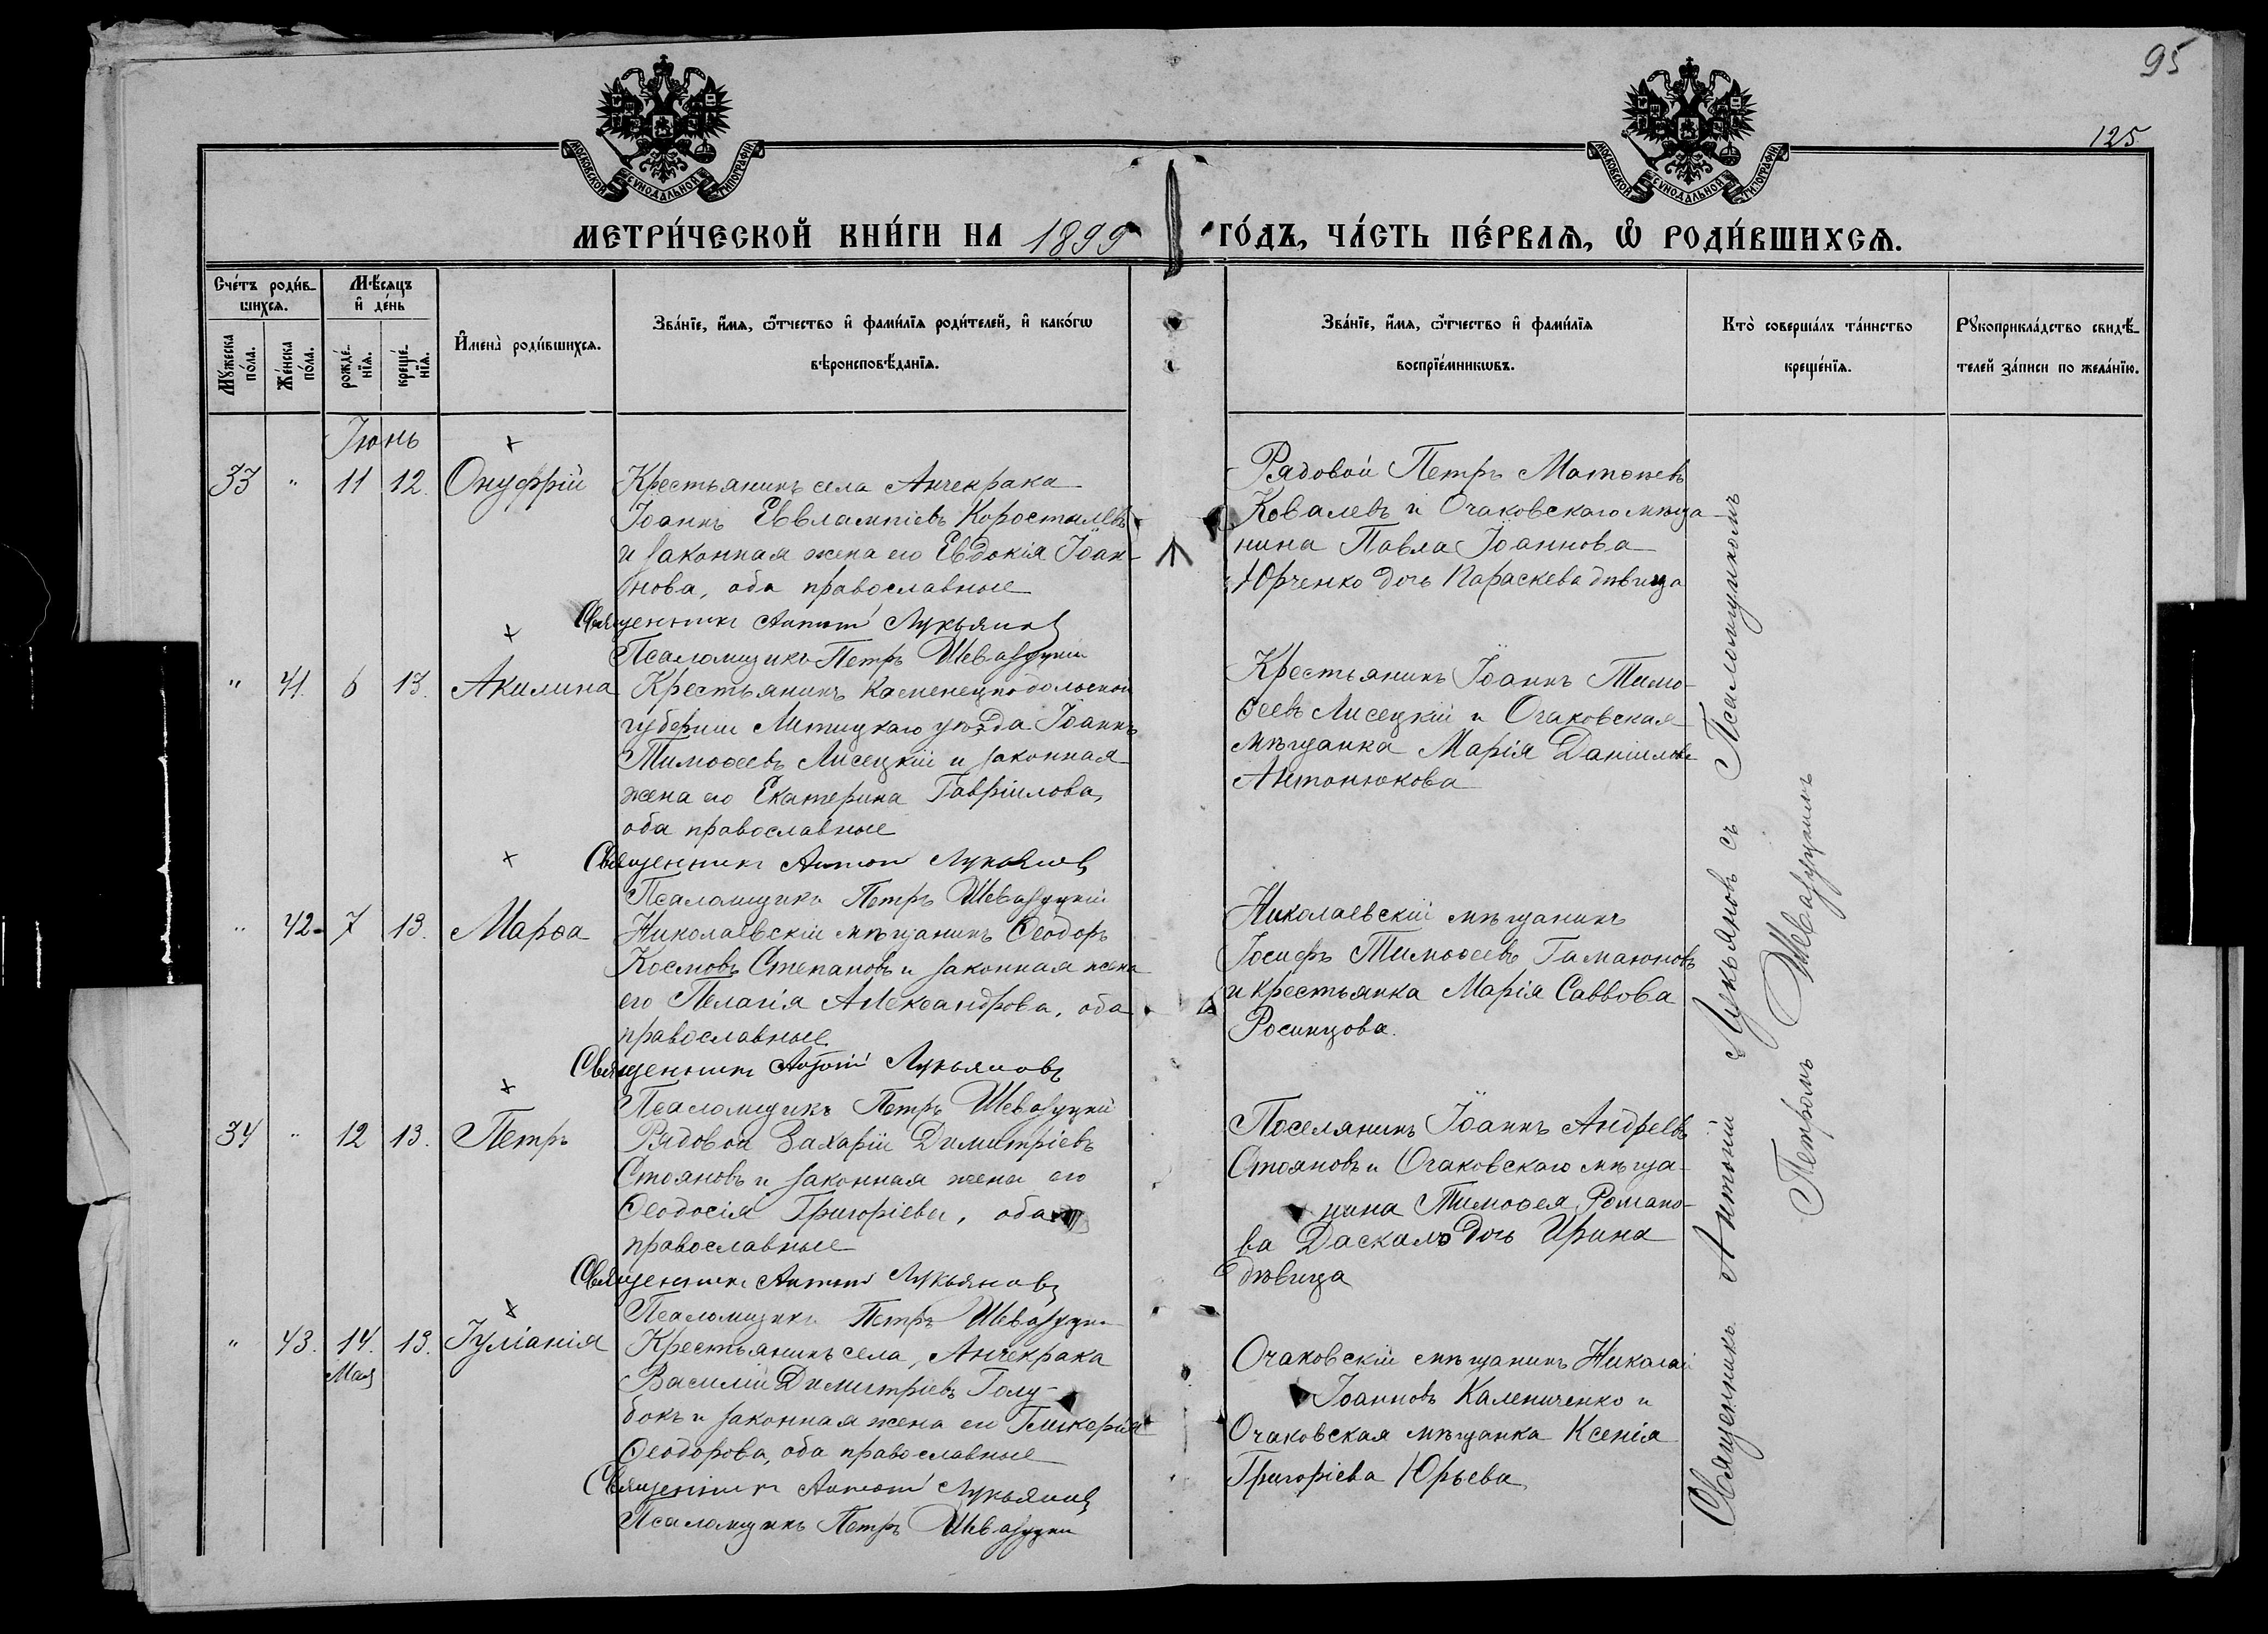 95
125
МОСКОВСКОЙ СУНОДАЛЬНОЙ ТИПОГРАФІИ
МОСКОВСКОЙ СУНОДАЛЬНОЙ ТИПОГРАФІИ
МЕТРИ́ЧЕСКОЙ КНИ́ГИ НА 1899 ГО́ДЪ, ЧА́СТЬ ПЕ́РВАѦ, Ѡ҆ РОДИ́ВШИХСѦ.
Сче́тъ роди́в-
шихсѧ.
Мѣ́сѧцъ
и҆ де́нь
Мꙋ́жеска
по́ла.
Же́нска
по́ла.
рожде́-
нїѧ.
креще́-
нїѧ.
И҆мена̀ роди́вшихсѧ.
Зва́нїе, и҆́мѧ, ѻ҆́тчество и҆ фами́лїѧ роди́телей, и҆ како́гѡ
вѣроисповѣ́данїѧ.
Зва́нїе, и҆́мѧ, ѻ҆́тчество и҆ фами́лїѧ
воспрїе́мникѡвъ.
Кто̀ соверша́лъ та́инство
креще́нїѧ.
Рꙋкоприкла́дство свидѣ́-
телей за́писи по жела́нїю.
Іюнь
33 " 11 12. Онуфрій
Крестьянинъ села Анчекрака
Іоаннъ Еввлампіевъ Коростылевъ
и законная жена его Евдокія Іоан-
нова, оба православные
Священникъ Антоній Лукьяновъ
Псаломщикъ Петръ Шевазуцкій
Рядовой Петръ Матѳеевъ
Ковалевъ и Очаковскаго мѣща-
нина Павла Іоаннова
Юрченко дочь Параскева дѣвица
" 41. 6 13. Акилина
Крестьянинъ Каменецподольской
губерніи Литицкаго уѣзда Іоаннъ
Тимоѳеевъ Лисецкій и законная
жена его Екатерина Гавріилова,
оба православные
Священникъ Антоній Лукьяновъ
Псаломщикъ Петръ Шевазуцкій
Крестьянинъ Іоаннъ Тимо-
ѳеевъ Лисецкій и Очаковская
мѣщанка Марія Даніилова
Антонюкова
" 42. 7 13. Марѳа
Николаевскій мѣщанинъ Ѳеодоръ
Космовъ Степановъ и законная жена
его Пелагія Александрова, оба
православные
Священникъ Антоній Лукьяновъ
Псаломщикъ Петръ Шевазуцкій
Николаевскій мѣщанинъ
Іосифъ Тимоѳеевъ Гамаюновъ
и крестьянка Марія Саввова
Росинцова.
34 " 12 13. Петръ
Рядовой Захарій Димитріевъ
Стояновъ и законная жена его
Ѳеодосія Григоріева, оба
православные
Священникъ Антоній Лукьяновъ
Псаломщикъ Петръ Шевазуцкій
Поселянинъ Іоаннъ Андреевъ
Стояновъ и Очаковскаго мѣща-
нина Тимоѳея Романо-
ва Даскалъ дочь Ирина
дѣвица
" 43. 14. 13. Іуліанія
Мая
Крестьянинъ села Анчекрака
Василій Димитріевъ Голу-
бокъ и законная жена его Гликерія
Ѳеодорова, оба православные
Священникъ Антоній Лукьяновъ
Псаломщикъ Петръ Шевазуцкій
Очаковскій мѣщанинъ Николай
Іоанновъ Калениченко и
Очаковская мѣщанка Ксенія
Григоріева Юрьева
Священникъ Антоній Лукьяновъ съ Псаломщикомъ
Петромъ Шевазуцкимъ